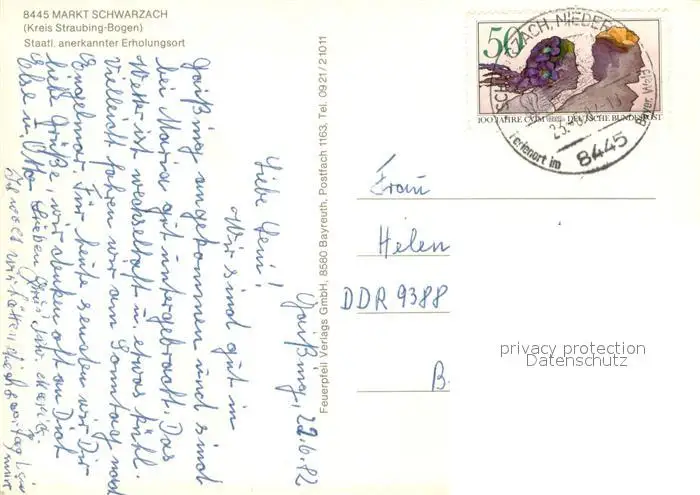 8445 MARKT SCHWARZACH
(Kreis Straubing-Bogen)
Staatl. anerkannter Erholungsort
Gaißing, 22.6.82
Liebe Leni!
Wir sind gut in
Gaißing angekommen und sind
bei Maria gut untergebracht. Das
Wetter ist wechselhaft u. etwas kühl.
Vielleicht fahren wir am Sonntag nach
Engelmar. Für heute senden wir Dir
liebe Grüße, wir denken oft an Dich
Else u. Otto
Lieben Gruß
Feuerpfeil Verlags GmbH, 8580 Bayreuth, Postfach 1163, Tel. 0921/21011
50
100 JAHRE CVJM DEUTSCHE BUNDESPOST
SCHWARZACH, NIEDERB
Ferienort im Bayer. Wald
8445
Frau
Helen
DDR 9388
B
privacy protection
Datenschutz